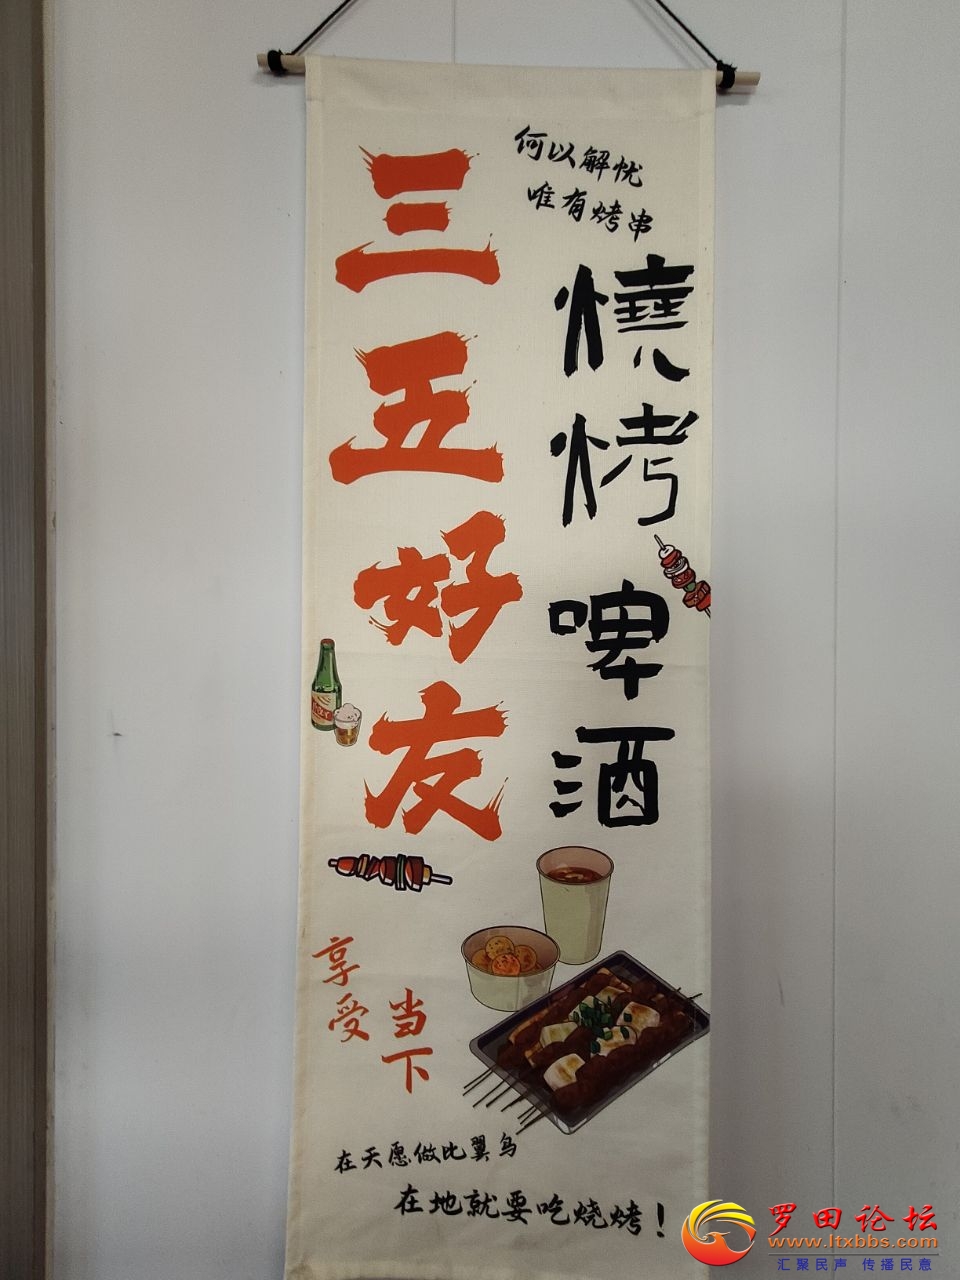 何以解忧
唯有烤串
燒烤啤酒
三五好友
享受
当下
在天愿做比翼鸟
在地就要吃烧烤！
罗田论坛
www.ltxbbs.com
汇聚民声 传播民意